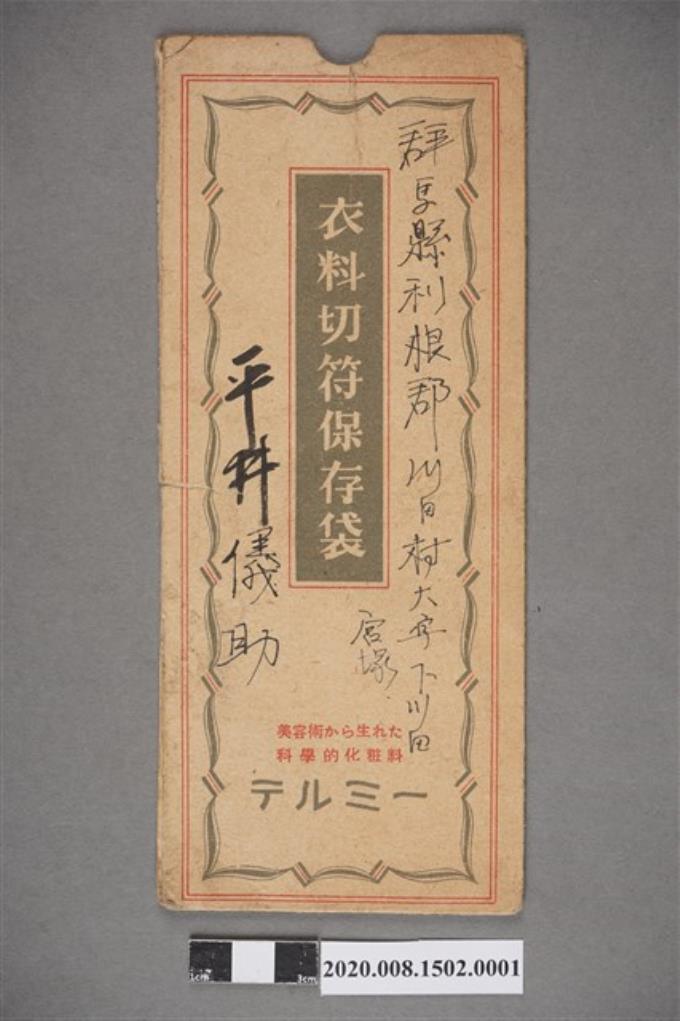 群馬縣利根郡川田村大字下川田
宮塚
衣料切符保存袋
平井儀助
美容術から生れた
科學的化粧料
テルミー
1cm 3cm
2020.008.1502.0001